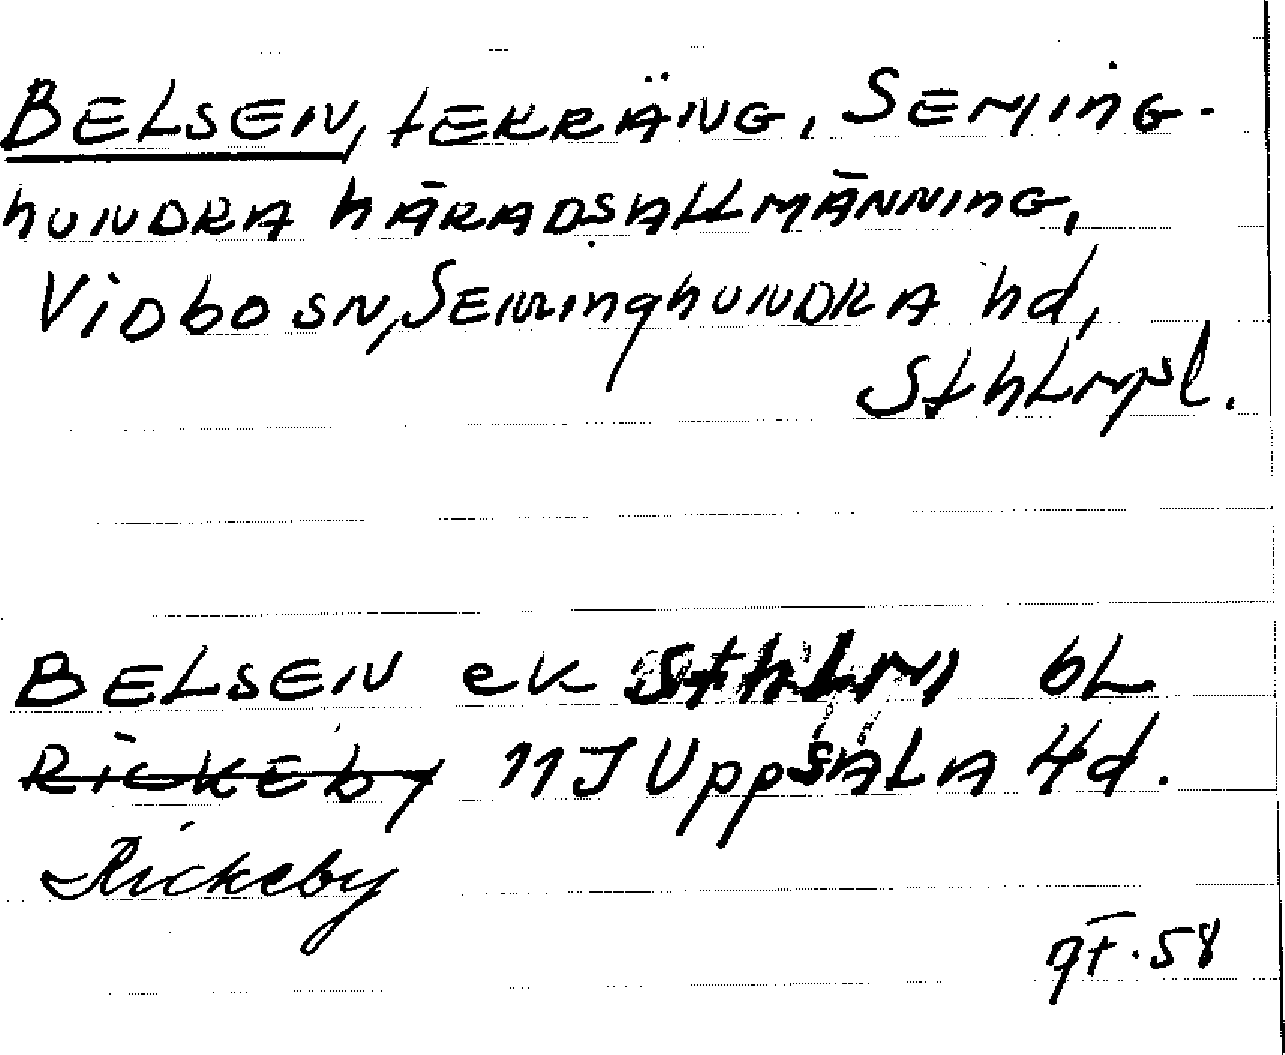 BELSEN, tEKRÄNG, SEMING-
hUNDRA hÄRADSALLMÄNNING,
Vidbo SN, SEMINGhUNDRA hd,
SthLmsl.
BELSEN ek SthLm bL
Rickeby 11J UppsALA Hd.
Rickeby